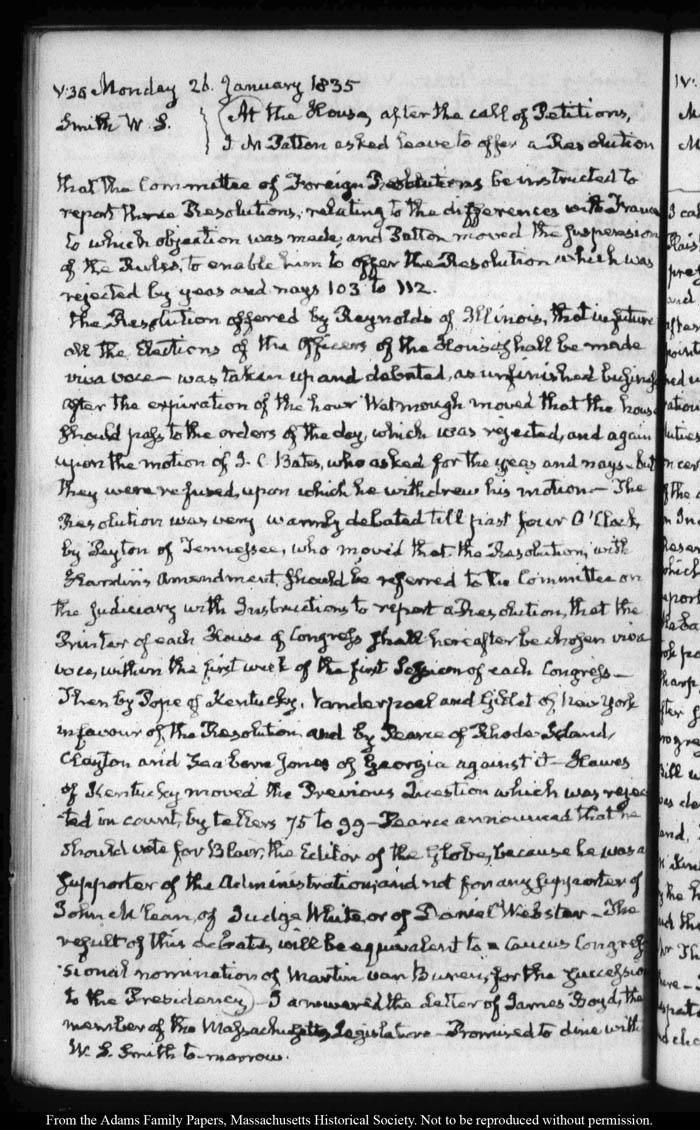 V:30 Monday 26. January 1835
Smith W. S.
At the House, after the call of Petitions,
J M Patton asked leave to offer a Resolution
that the Committee of Foreign Resolutions be instructed to
report three Resolutions, relating to the differences with France
to which objection was made, and Patton moved the suspension
of the Rules, to enable him to offer the Resolution which was
rejected by yeas and nays 103 to 112.
the Resolution offered by Reynolds of Illinois, that in future
all the Elections of the Officers of the House shall be made
viva voce— was taken up and debated, as unfinished business
after the expiration of the hour Watmough moved that the house
should pass to the orders of the day, which was rejected, and again
upon the motion of I. C. Bates, who asked for the yeas and nays— but
they were refused, upon which he withdrew his motion— The
Resolution was very warmly debated till past four O'Clock,
by Peyton of Tennessee, who moved that the Resolution, with
Hardin's Amendment, should be referred to the Committee on
the Judiciary with Instructions to report a Resolution, that the
Printer of each House of Congress shall hereafter be chosen viva
voce, within the first week of the first Session of each Congress—
Then by Pope of Kentucky, Vanderpoel and Gillet of New York
in favour of the Resolution and by Pearce of Rhode-Island,
Clayton and Seaborn Jones of Georgia against it— Hawes
of Kentucky moved the Previous Question which was rejec
ted in count, by tellers 75 to 99— Pearce announced that he
should vote for Blair, the Editor of the Globe, because he was a
supporter of the Administration, and not for any supporter of
John McLean, of Judge White, or of Daniel Webster— The
result of this debate, will be equivalent to a Caucus Congress
sional nomination of Martin van Buren, for the succession
to the Presidency— I answered the Letter of James Boyd, the
member of the Massachusetts Legislature— Promised to dine with
W. S. Smith to-morrow.
From the Adams Family Papers, Massachusetts Historical Society. Not to be reproduced without permission.